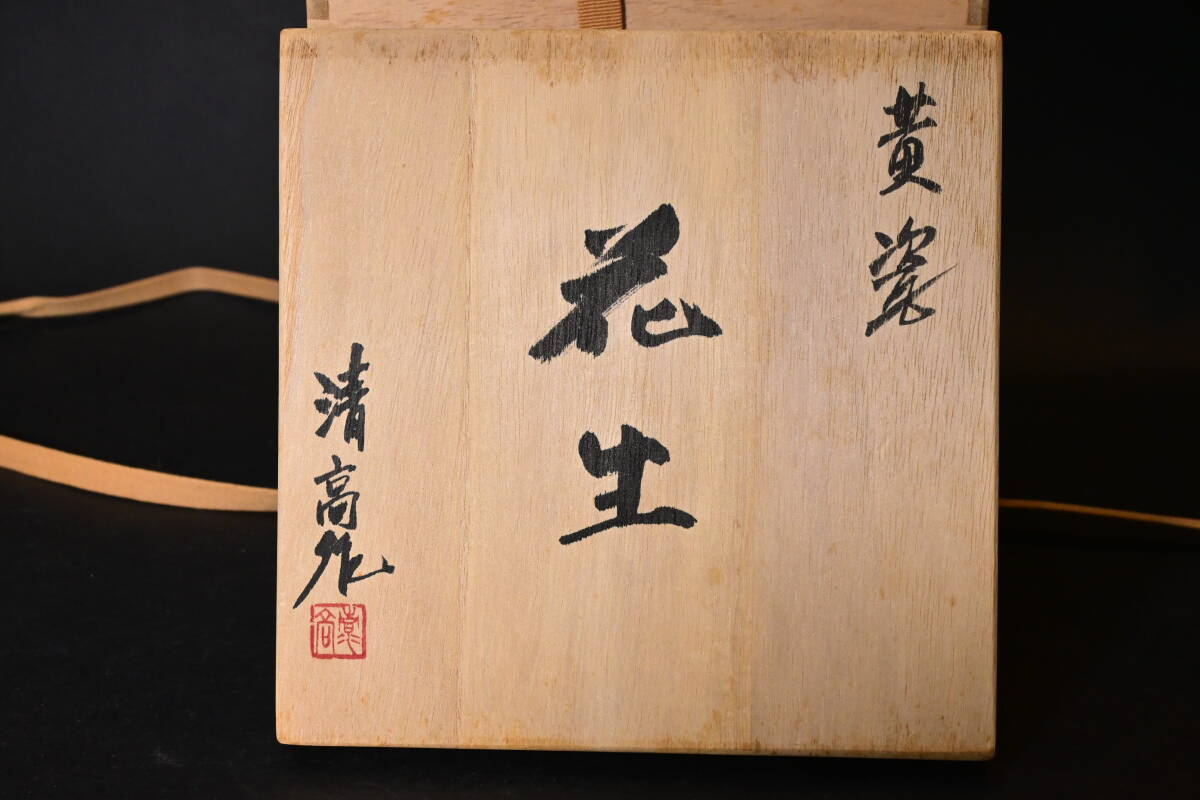 黄瓷
花生
清高作